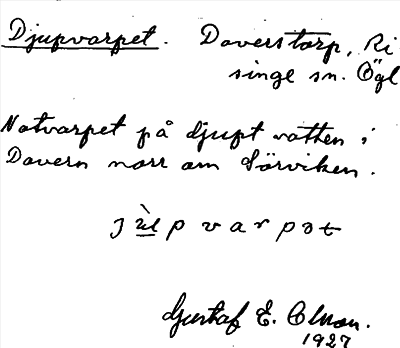 Djupvarpet. Daverstorp, Ri
singe sn. Ögl
Notvarpet på djupt vatten i
Davern norr om Sörviken.
jùpvarpət
Gustaf E. Olson.
1927